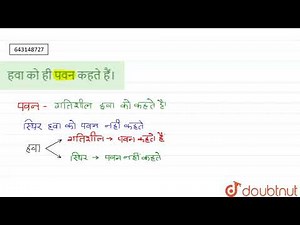 643148727
हवा को ही पवन कहते हैं।
पवन - गतिशील हवा को कहते हैं।
स्थिर हवा को पवन नहीं कहते
गतिशील → पवन कहते हैं
हवा
स्थिर → पवन नहीं कहते
doubtnut